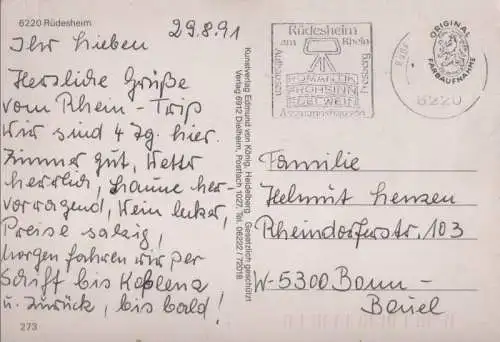 6220 Rüdesheim
29.8.91
Ihr Lieben
Herzliche Grüße
vom Rhein - Trip
Wir sind 4 Tg. hier.
Zimmer gut, Wetter
herrlich, Laune her-
vorragend, Wein lecker,
Preise salzig,
morgen fahren wir per
Schiff bis Koblenz
u. zurück, bis bald!
273
Kunstverlag Edmund von König, Heidelberg Gesetzlich geschützt
Verlag 6912 Dielheim, Postfach 1027, Tel. 06222 / 72018
Rüdesheim
am Rhein
ROMANTIK
FROHSINN
EDELWEIN
Assmannshausen
Aulhausen
Presberg
6220
ORIGINAL
FARBAUFNAHME
Familie
Helmut Henzen
Rheindorferstr. 103
W-5300 Bonn-
Beuel